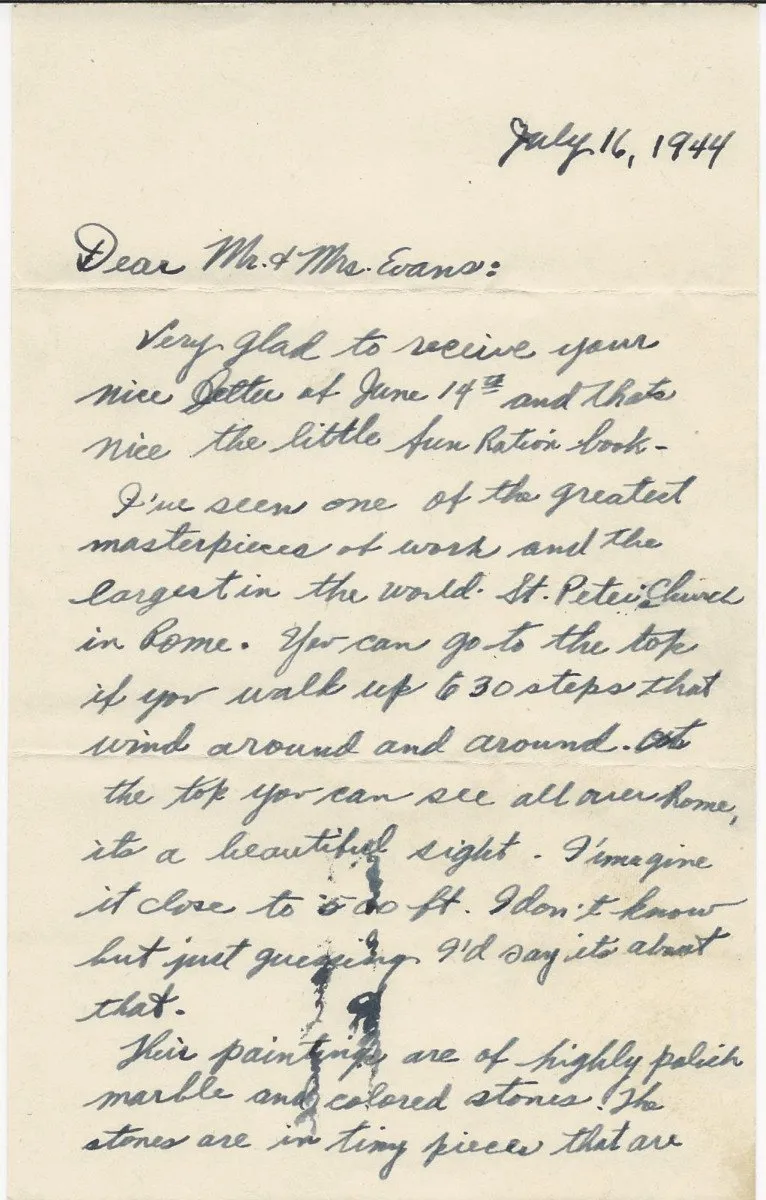 July 16, 1944
Dear Mr. & Mrs. Evans:
Very glad to receive your
nice letter of June 14th and thats
nice the little fun Ration book-
I've seen one of the greatest
masterpieces of work and the
largest in the world. St. Peter Church
in Rome. You can go to the top
if you walk up 630 steps that
wind around and around. At
the top you can see all over Rome,
its a beautiful sight. I imagine
it close to 500 ft. I don't know
but just guessing I'd say its about
that.
Their paintings are of highly polish
marble and colored stones. The
stones are in tiny pieces that are